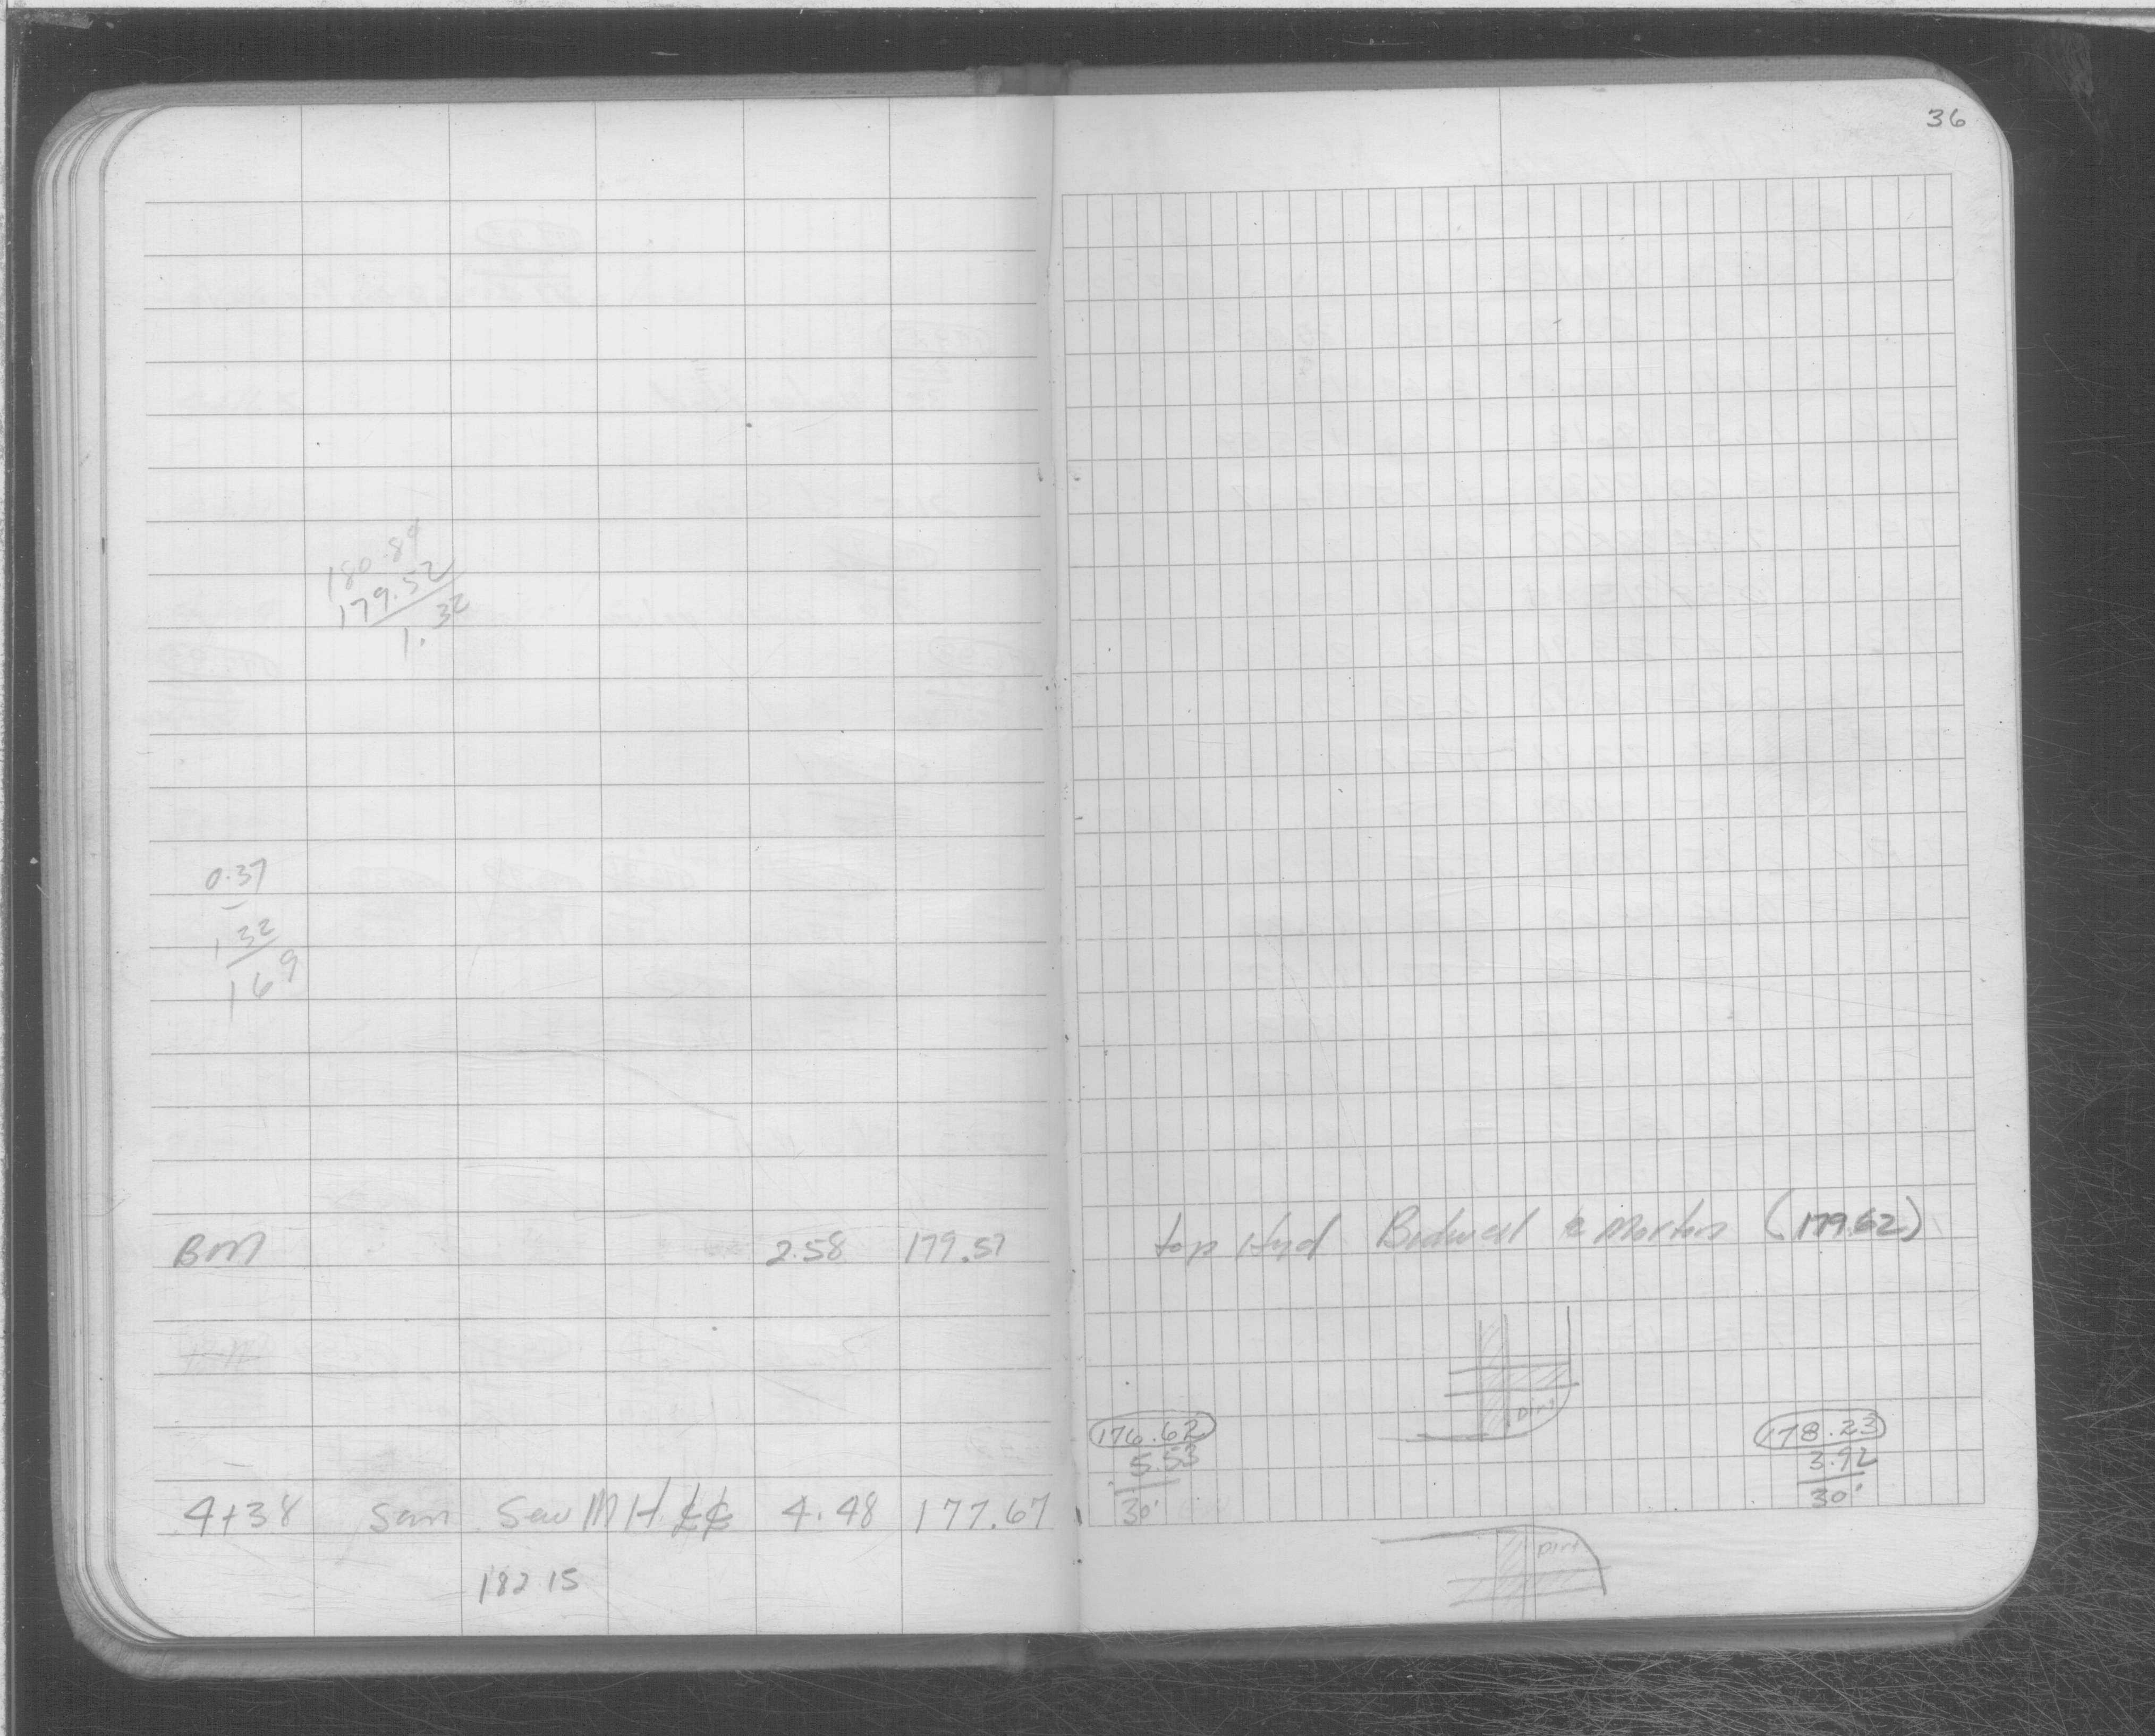 36
180.84
179.52
1.32
0.37
1 32
1 69
BM 2.58 179.57
top Hyd Bidwell & Morton (179.62)
Dirt
176.62
5.53
30'
178.23
3.92
30'
4+38 San Sew MH 4.48 177.67
Dirt
182 15